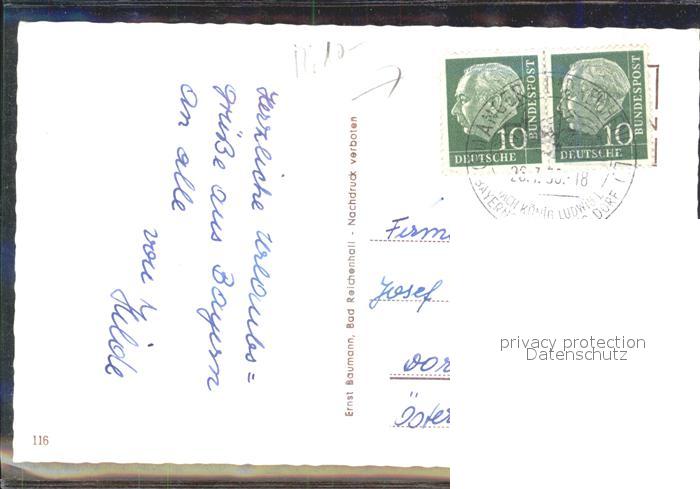 Herzliche Urlaubs=
grüße aus Bayern
an alle
von
Hilde
Ernst Baumann, Bad Reichenhall - Nachdruck verboten
116
10
DEUTSCHE
BUNDESPOST
10
DEUTSCHE
BUNDESPOST
KÖNIG LUDWIG
DORF
Josef
privacy protection
Datenschutz